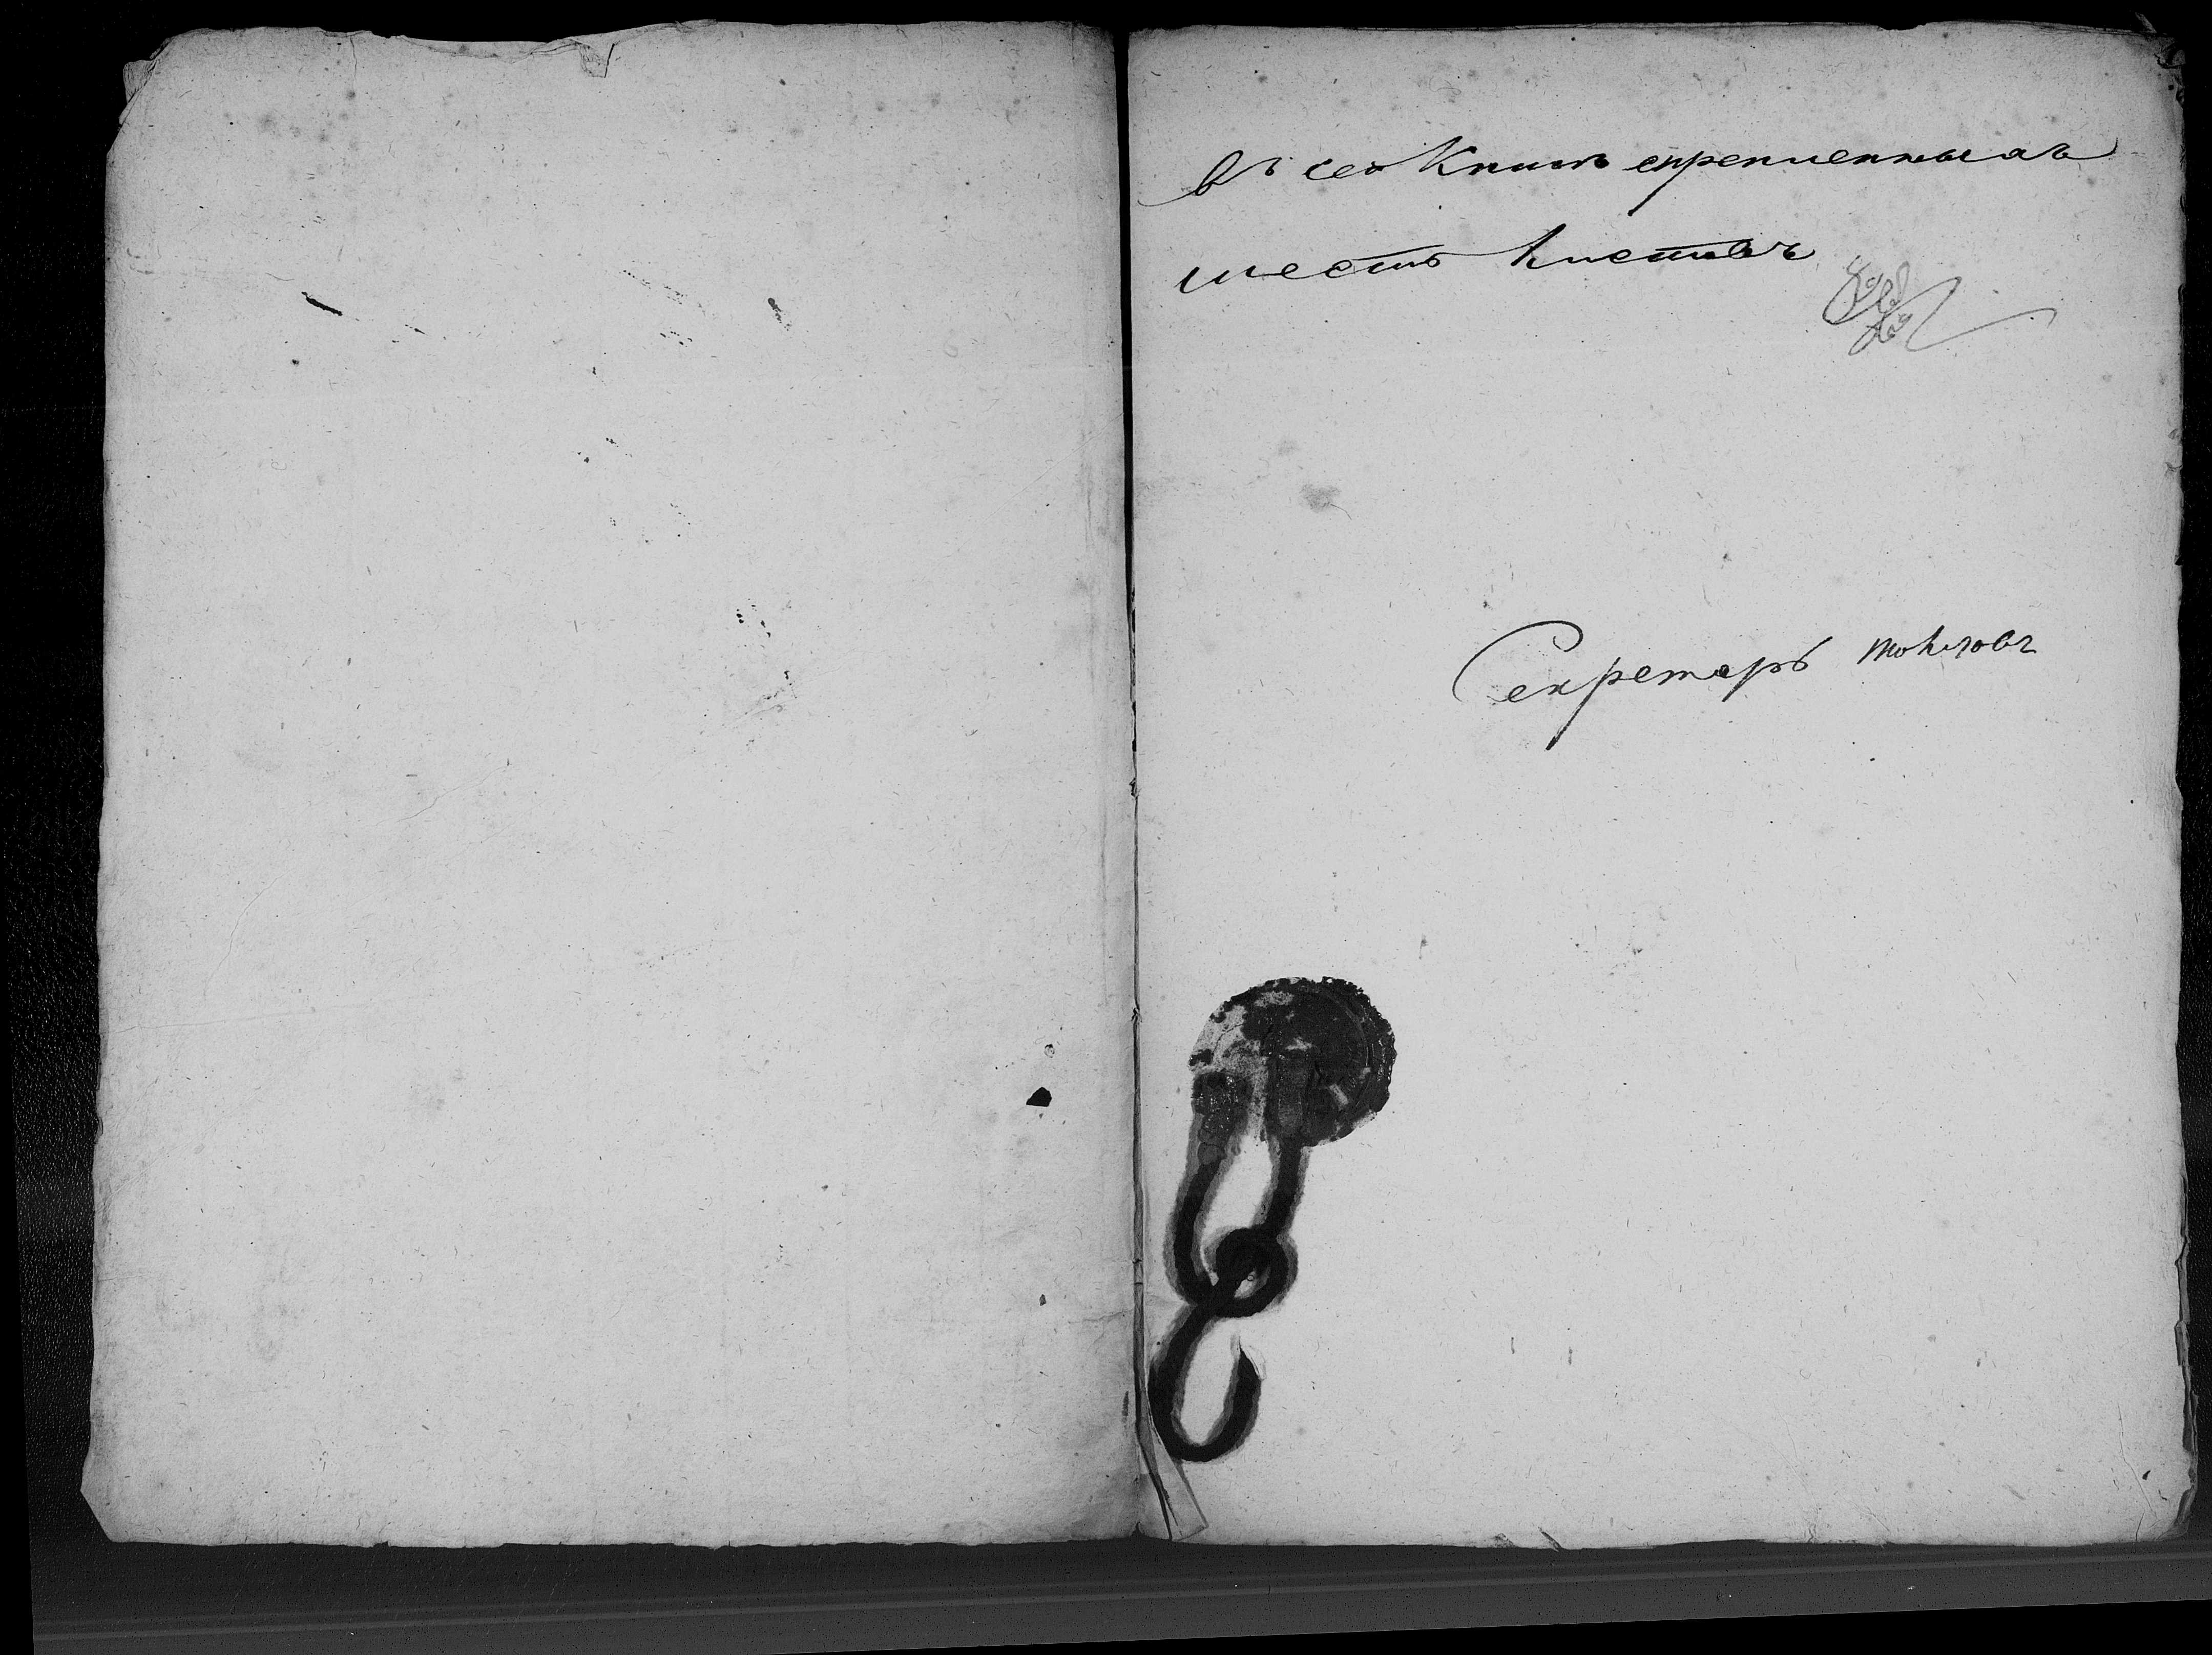 въ сей Книгѣ скрепленныхъ
шесть листовъ
Секретарь